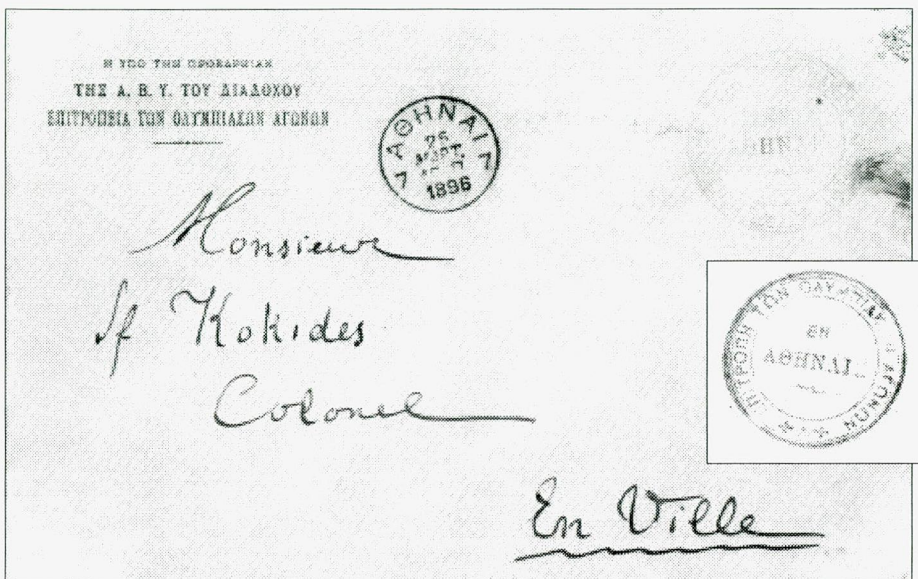 Η ΥΠΟ ΤΗΝ ΠΡΟΕΔΡΕΙΑΝ
ΤΗΣ Α. Β. Υ. ΤΟΥ ΔΙΑΔΟΧΟΥ
ΕΠΙΤΡΟΠΕΙΑ ΤΩΝ ΟΛΥΜΠΙΑΚΩΝ ΑΓΩΝΩΝ
ΑΘΗΝΑΙ
ΜΑΡΤ.
1896
7 7
Monsieur
Sp Kokides
Colonel
En Ville
ΕΠΙΤΡΟΠΗ ΤΩΝ ΟΛΥΜΠΙΑΚ ΑΓΩΝΩΝ
ΕΝ
ΑΘΗΝΑΙ